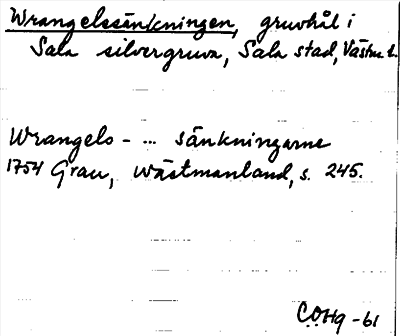 Wrangelssänkningen, gruvhål i
Sala silvergruva, Sala stad, Västm. l.
Wrangels - ... sänkningarne
1754 Grau, Wästmanland, s. 245.
C.O.Hg -61